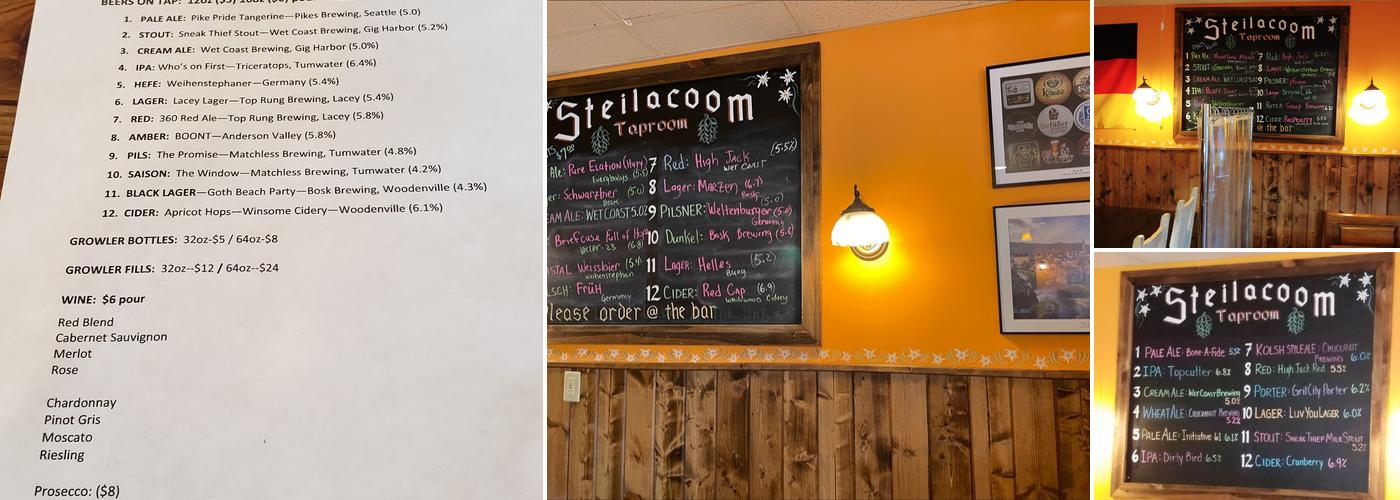 BEERS ON TAP: 12oz
1. PALE ALE: Pike Pride Tangerine—Pikes Brewing, Seattle (5.0)
2. STOUT: Sneak Thief Stout—Wet Coast Brewing, Gig Harbor (5.2%)
3. CREAM ALE: Wet Coast Brewing, Gig Harbor (5.0%)
4. IPA: Who's on First—Triceratops, Tumwater (6.4%)
5. HEFE: Weihenstephaner—Germany (5.4%)
6. LAGER: Lacey Lager—Top Rung Brewing, Lacey (5.4%)
7. RED: 360 Red Ale—Top Rung Brewing, Lacey (5.8%)
8. AMBER: BOONT—Anderson Valley (5.8%)
9. PILS: The Promise—Matchless Brewing, Tumwater (4.8%)
10. SAISON: The Window—Matchless Brewing, Tumwater (4.2%)
11. BLACK LAGER—Goth Beach Party—Bosk Brewing, Woodenville (4.3%)
12. CIDER: Apricot Hops—Winsome Cidery—Woodenville (6.1%)
GROWLER BOTTLES: 32oz-$5 / 64oz-$8
GROWLER FILLS: 32oz--$12 / 64oz--$24
WINE: $6 pour
Red Blend
Cabernet Sauvignon
Merlot
Rose
Chardonnay
Pinot Gris
Moscato
Riesling
Prosecco: ($8)
Steilacoom
Taproom
Ale: Pure Elation (Hazy)
Everybodys (5.5)
er: Schwarzbier (5.0)
Bosk
EAM ALE: WET COAST 5.0%
Briefcase Full of Hops
Vector-23 (6.8)
STAL Weissbier (5.4)
Weihenstephan
LSCH: FRÜH
Germany
7 Red: High Jack (5.5%)
WET COAST
8 Lager: MARZEN (6.7)
Bosk
9 PILSNER: Weltenburger (5.0)
Germany
10 Dunkel: Bosk Brewing (5.6)
11 LAGER: Helles (5.2)
12 CIDER: Red Cap (6.9)
Whitewood Cidery
lease order @ the bar
Steilacoom
Taproom
1 Pale Ale: Mountain
2 STOUT:
3 CREAM ALE: WET COAST 5.0
4 IPA:
5
6
7 Red: High Jack
8 Lager: Weihenstephan Original
9 PILSNER:
10 Lager: Original
11 PORTER: Group Brewing
12 CIDER: Raspberry 5.5%
@ the bar
Steilacoom
Taproom
1 PALE ALE: Bone-A-Fide 5.5%
2 IPA: Topcutter 6.8%
3 CREAM ALE: WET COAST BREWING
5.0%
4 WHEAT ALE: CHUCKANUT BREWING
5.2%
5 PALE ALE: Initiative 61 6.1%
6 IPA: Dirty Bird 6.5%
7 KOLSH STYLE ALE: CHUCKANUT
BREWING 6.0%
8 RED: High Jack Red 5.5%
9 PORTER: Grit City Porter 6.2%
10 LAGER: LUV YOU LAGER 6.0%
11 STOUT: SNEAK THIEF MILK STOUT
5.2%
12 CIDER: Cranberry 6.9%